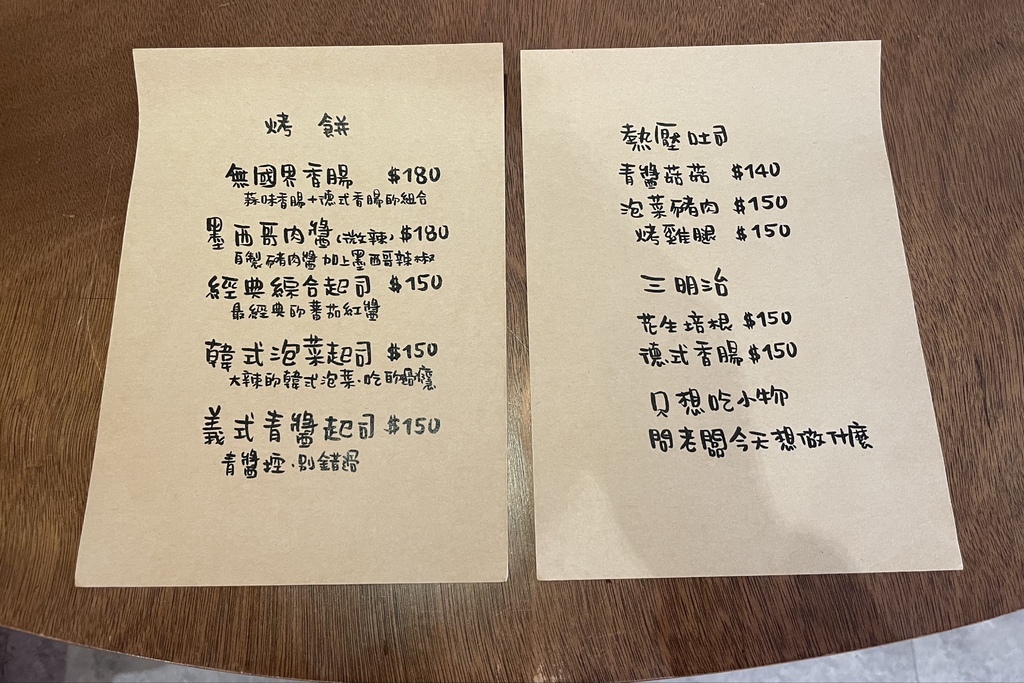 烤餅
無國界香腸 $180
蒜味香腸+德式香腸的組合
墨西哥肉醬(微辣) $180
自製豬肉醬加上墨西哥辣椒
經典綜合起司 $150
最經典的蕃茄紅醬
韓式泡菜起司 $150
大辣的韓式泡菜.吃的過癮
義式青醬起司 $150
青醬控.別錯過
熱壓吐司
青醬菇菇 $140
泡菜豬肉 $150
烤雞腿 $150
三明治
花生培根 $150
德式香腸 $150
只想吃小物
問老闆今天想做什麼